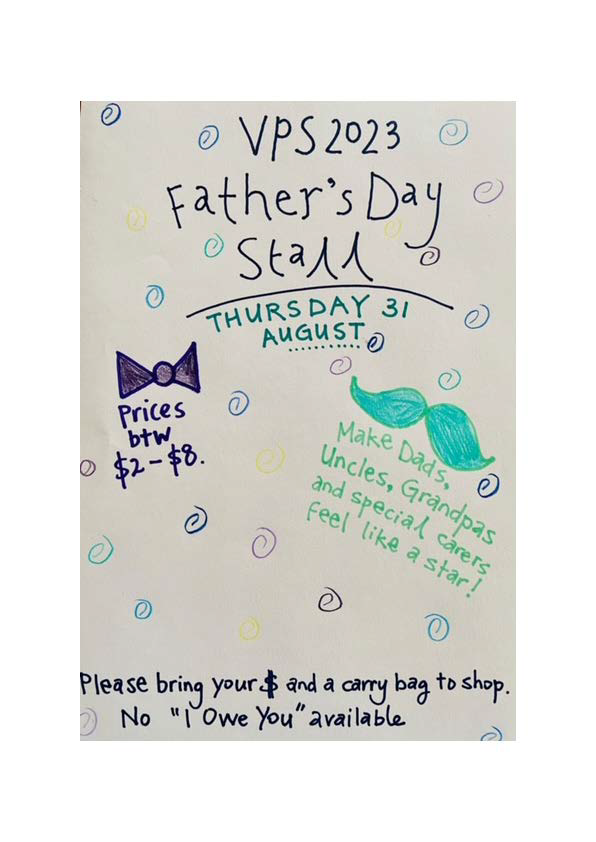 VPS 2023
Father's Day
Stall
THURSDAY 31
AUGUST
Prices
btw
$2-$8.
Make Dads,
Uncles, Grandpas
and special carers
feel like a star!
Please bring your $ and a carry bag to shop.
No "I Owe You" available